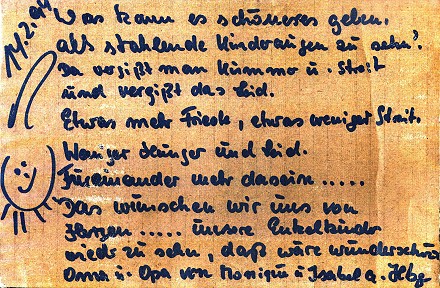 14.2.04
Was kann es schöneres geben,
als strahlende Kinderaugen zu sehn?
Da vergißt man Kummer u. Streit
und vergißt das Leid.
Etwas mehr Friede, etwas weniger Streit.
Weniger Hunger und Leid.
Füreinander mehr dasein.....
Das wünschen wir uns von
Herzen ..... unsere Enkelkinder
wieder zu sehn, daß wäre wunderschön
Oma u. Opa von Monique u Isabel a. Hbg